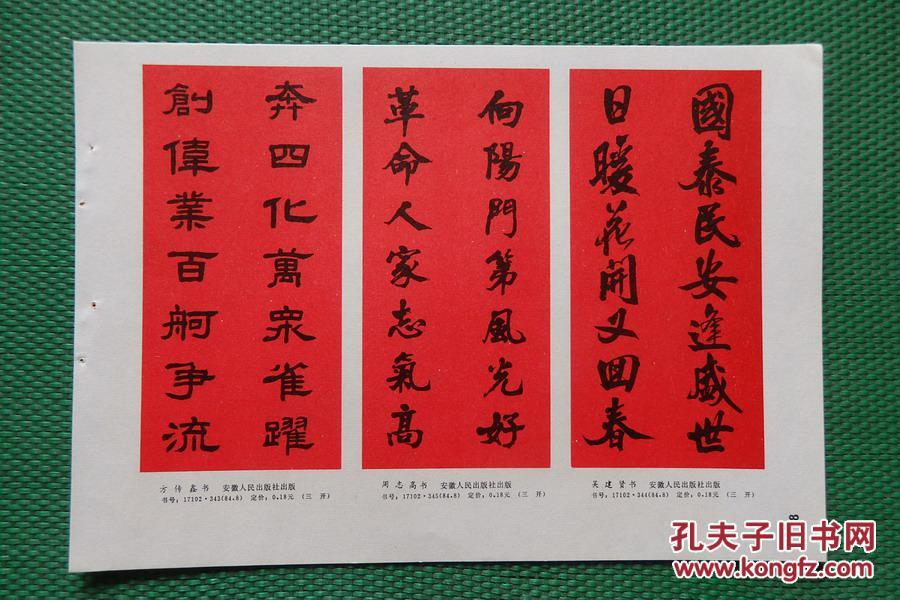 國泰民安逢盛世
日暖花開又回春
向陽門第風光好
革命人家志氣高
奔四化萬衆雀躍
創偉業百舸争流
方传鑫书 安徽人民出版社出版
书号：17102·343(84.8) 定价：0.18元 （三 开）
周志高书 安徽人民出版社出版
书号：17102·345(84.8) 定价：0.18元 （三 开）
吴建贤书 安徽人民出版社出版
书号：17102·344(84.8) 定价：0.18元 （三 开）
8
孔夫子旧书网
www.kongfz.com